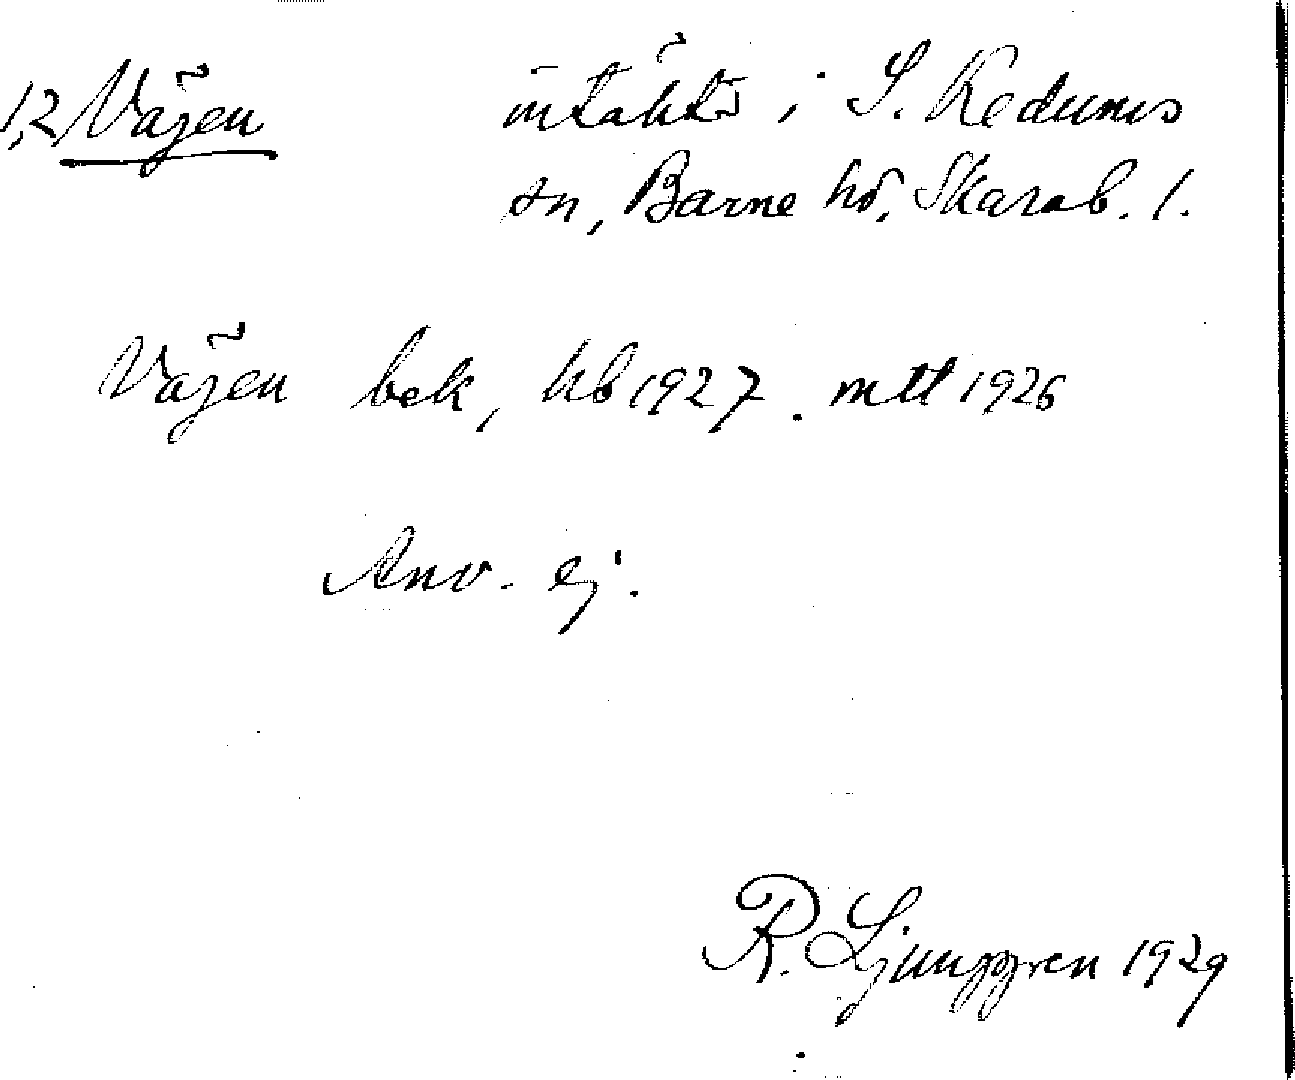 1,2 Vägen intäkt i S. Kedums
sn, Barne hd, Skarab. l.
Vägen bek, kb 1927. mtl 1926
Anv. ej.
R. Ljunggren 1929